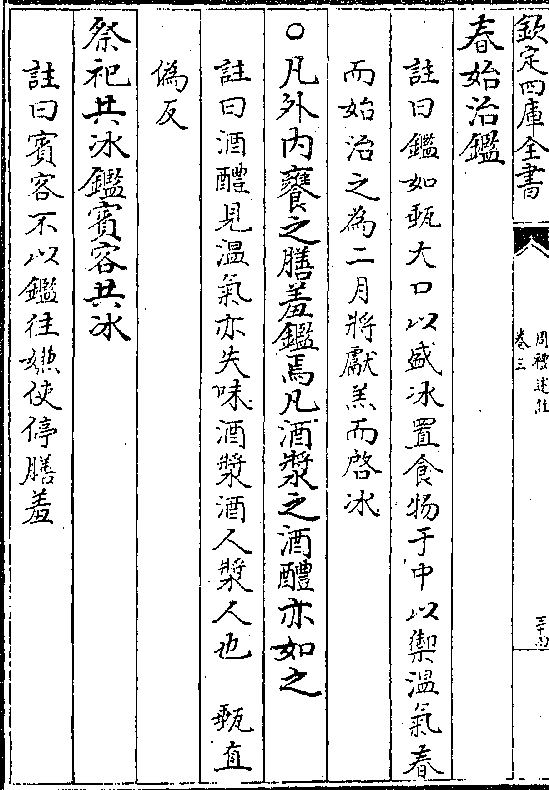 欽定四庫全書
周禮述註
卷三
三十四
春始治鑑
註曰鑑如甀大口以盛冰置食物于中以禦溫氣春
而始治之為二月將獻羔而啓冰
○凡外內饔之膳羞鑑焉凡酒漿之酒醴亦如之
註曰酒醴見溫氣亦失味酒漿酒人漿人也 甀直
偽反
祭祀共冰鑑賓客共冰
註曰賓客不以鑑往嫌使停膳羞